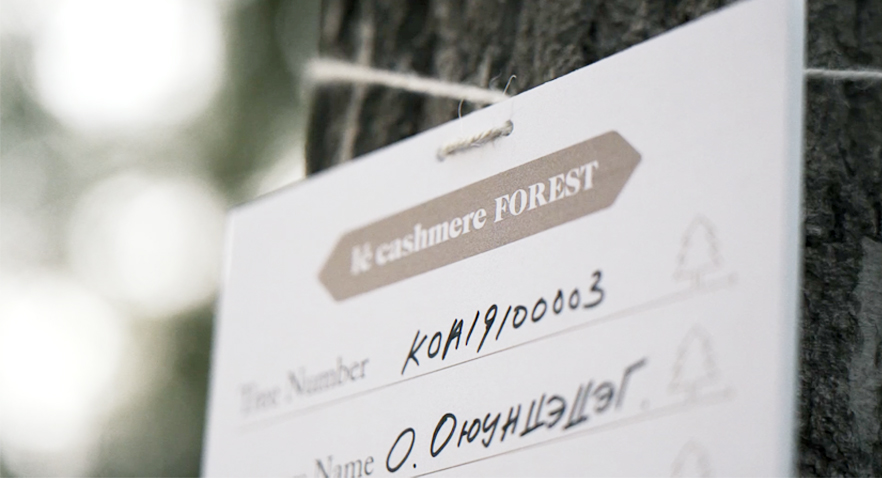 lé cashmere FOREST
Tree Number KOA19100003
Name О. Оюунцэцэг.